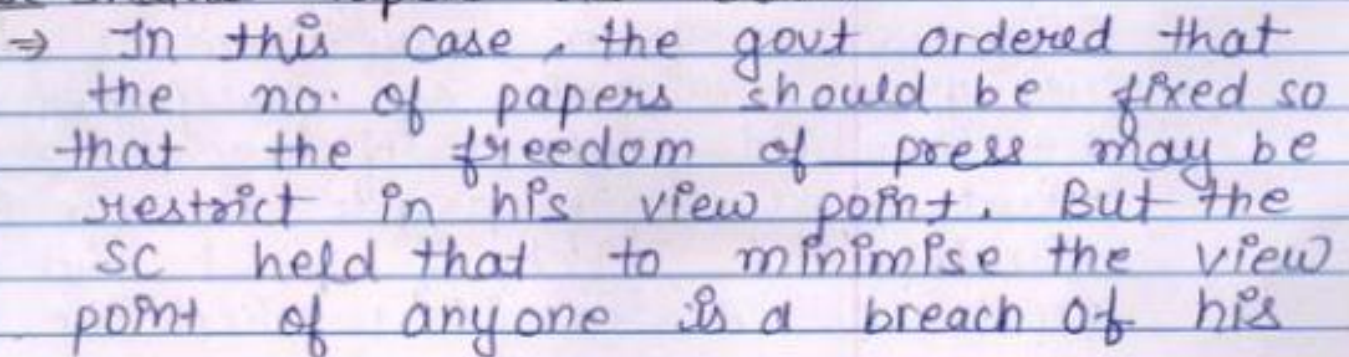 ⇒ In this case, the govt ordered that
the no. of papers should be fixed so
that the freedom of press may be
restrict in his view point. But the
SC held that to minimise the view
point of anyone is a breach of his